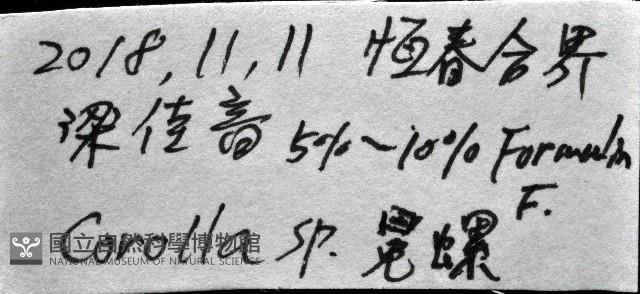 2018, 11, 11 恒春合界
梁佳音 5%~10% Formalin
F.
Corolla sp. 冕螺
國立自然科學博物館
NATIONAL MUSEUM OF NATURAL SCIENCE